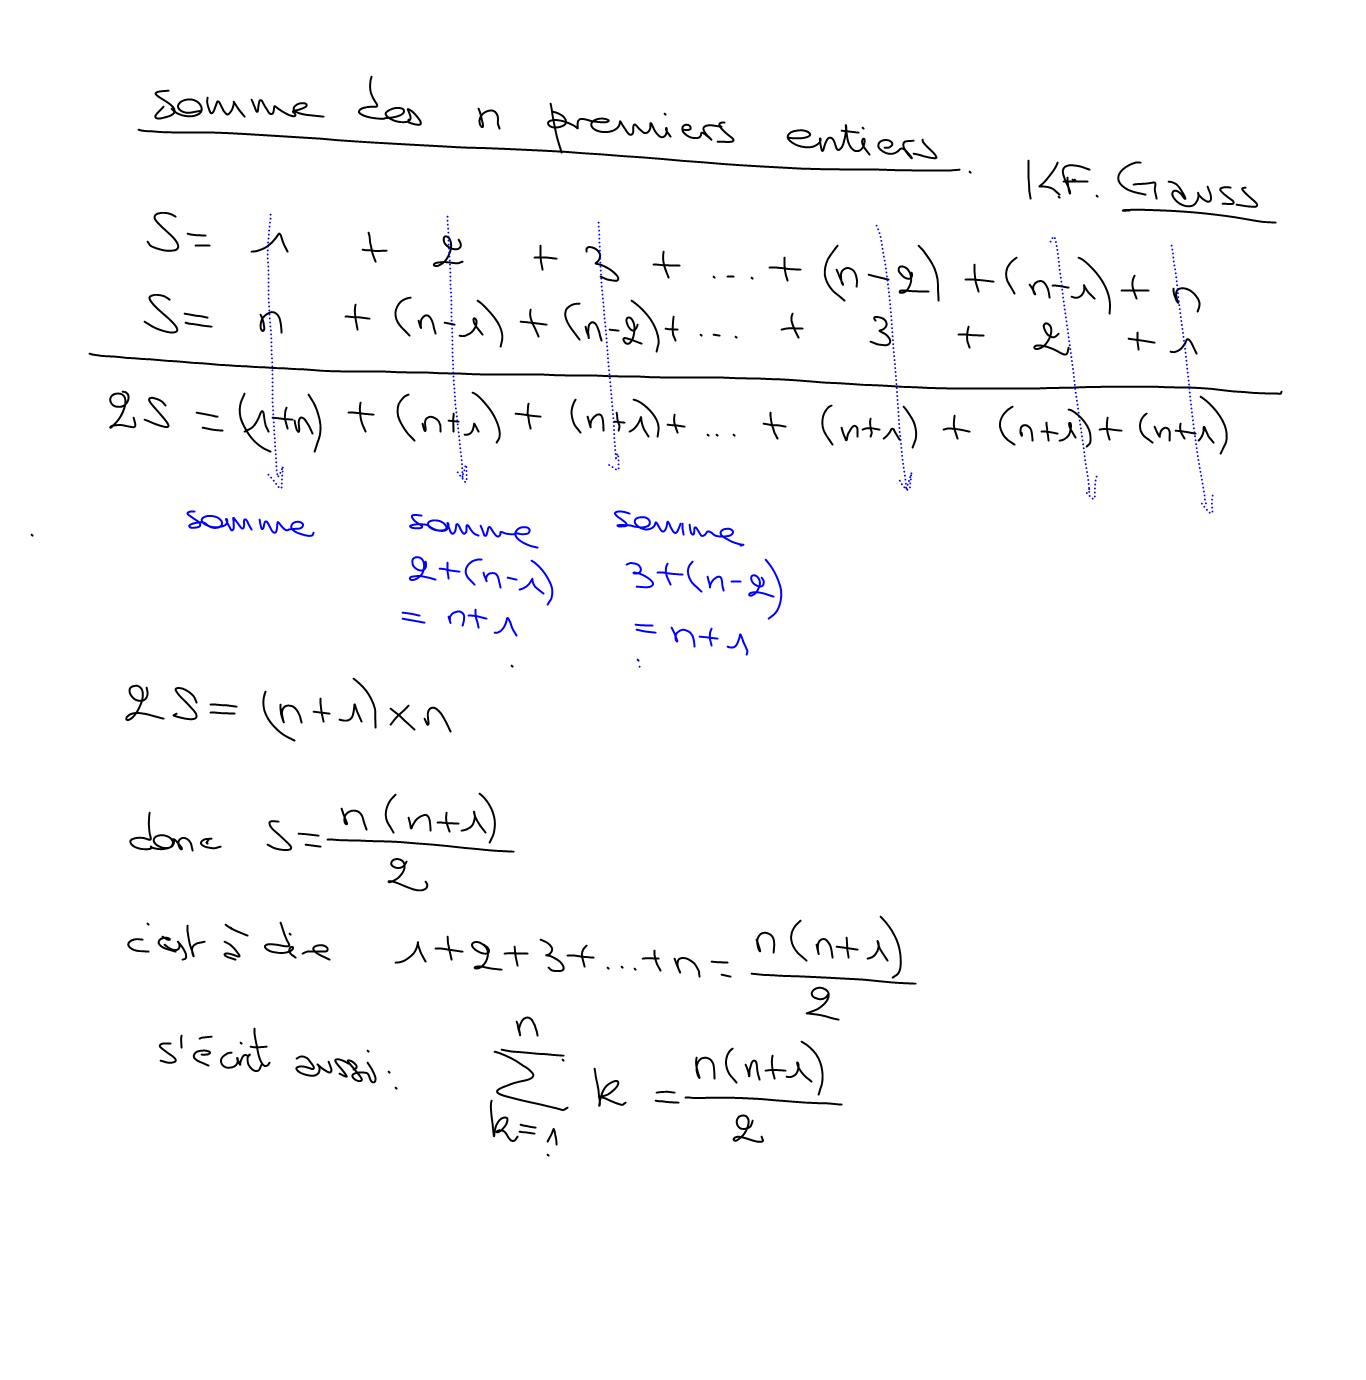 somme des n premiers entiers.
KF. Gauss
S = 1 + 2 + 3 + ... + (n-2) + (n-1) + n
S = n + (n-1) + (n-2) + ... + 3 + 2 + 1
2S = (1+n) + (n+1) + (n+1) + ... + (n+1) + (n+1) + (n+1)
somme somme somme
2+(n-1) 3+(n-2)
= n+1 = n+1
2S = (n+1)×n
donc S = n(n+1)/2
c'est à dire 1+2+3+...+n = n(n+1)/2
s'écrit aussi: ∑_{k=1}^{n} k = n(n+1)/2